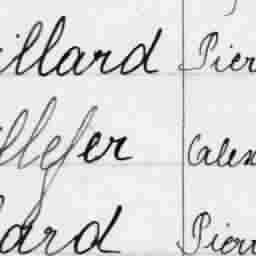 illard Pier
illefer Calex
lard Pierr